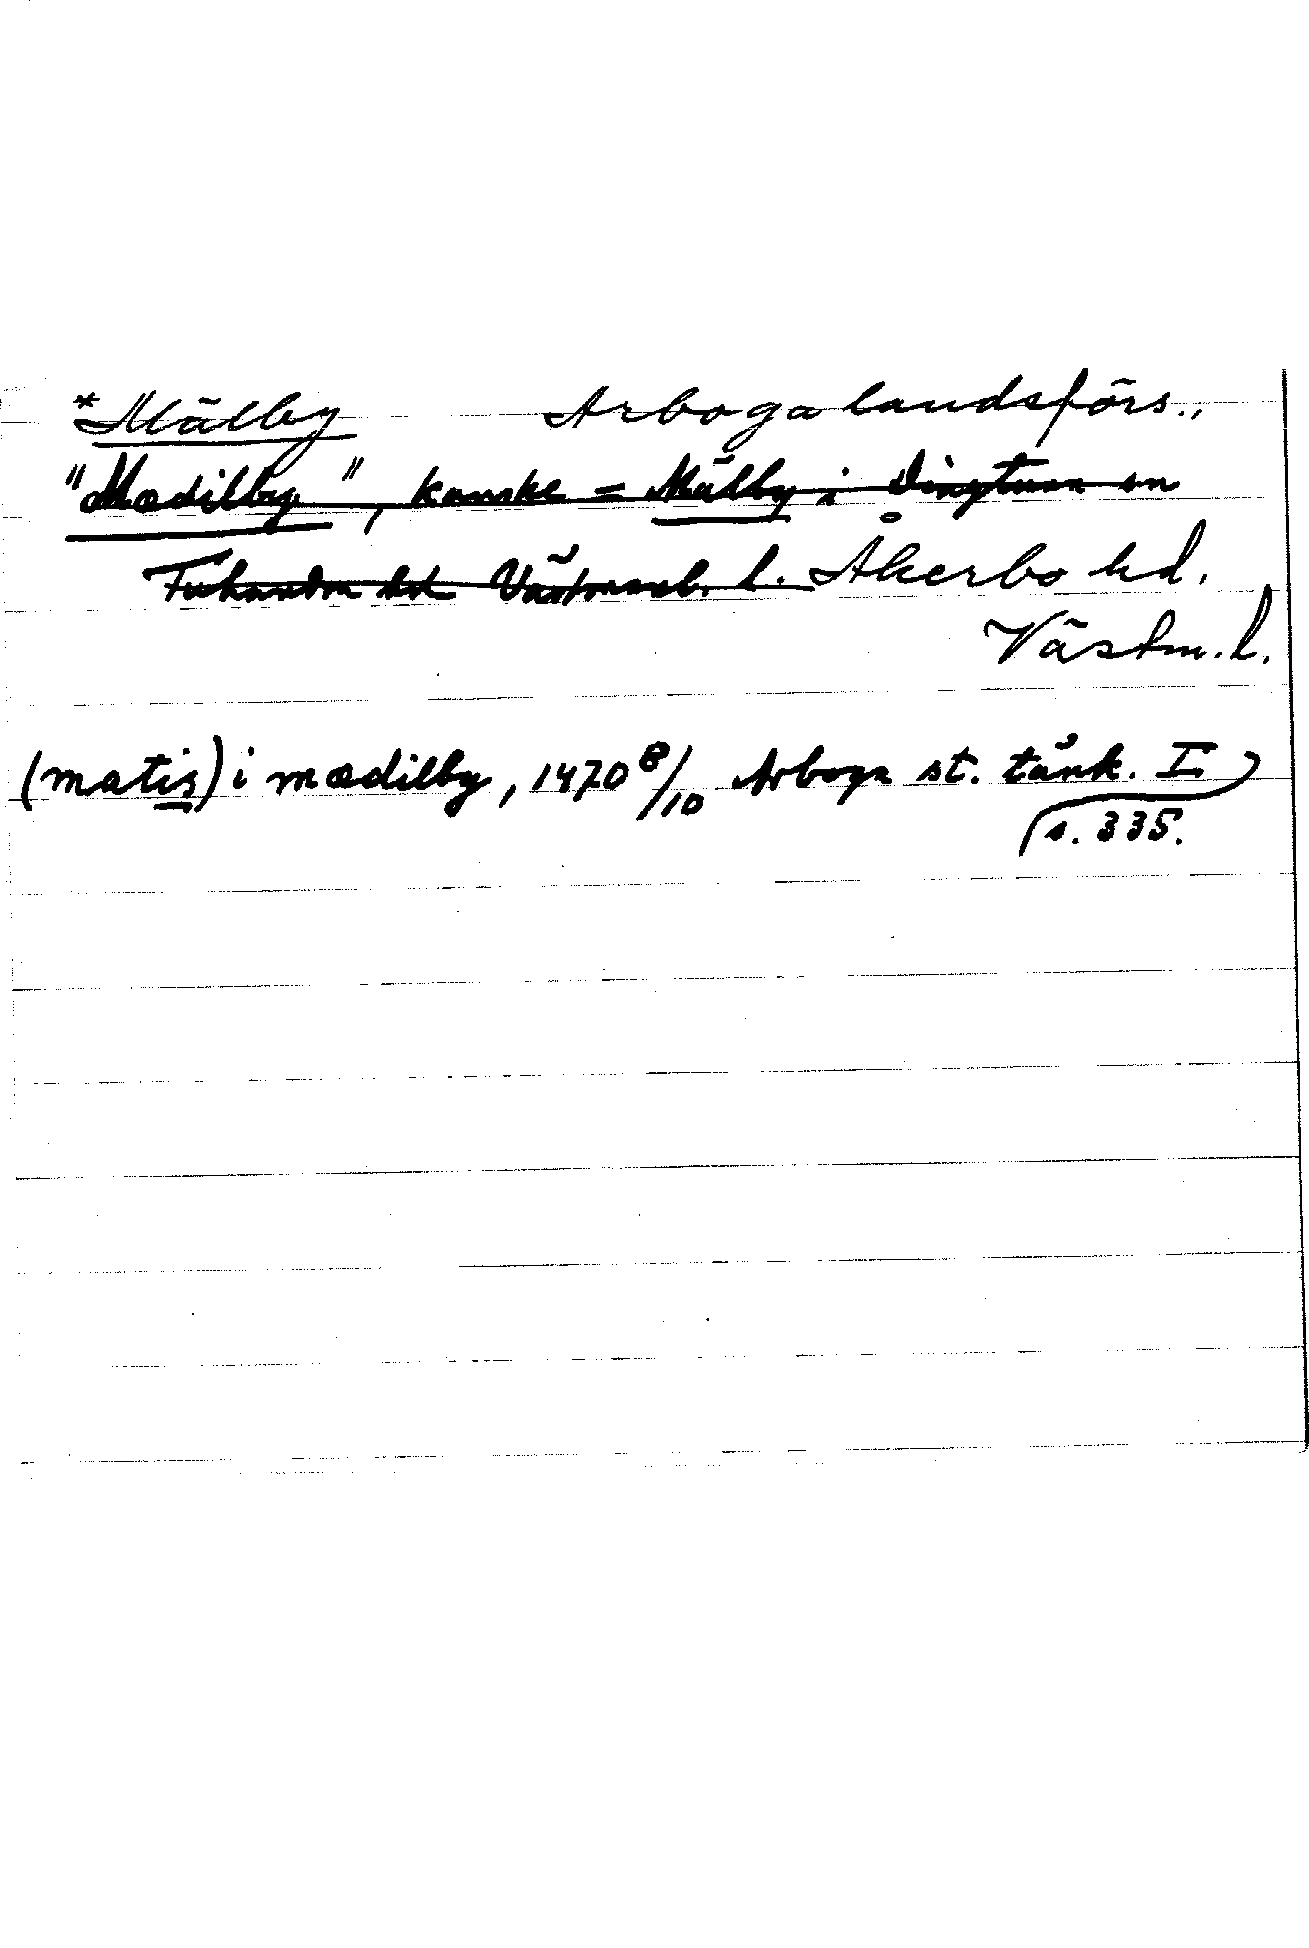 *Mälby Arboga landsförs.,
"Mædilby", kanske = Mälby i Dingtuna sn
Tuhundra hd Västmanl. l. Åkerbo hd.
Västm. l.
(matis) i mædilby, 1470 8/10 Arboga st. tänk. I
s. 335.